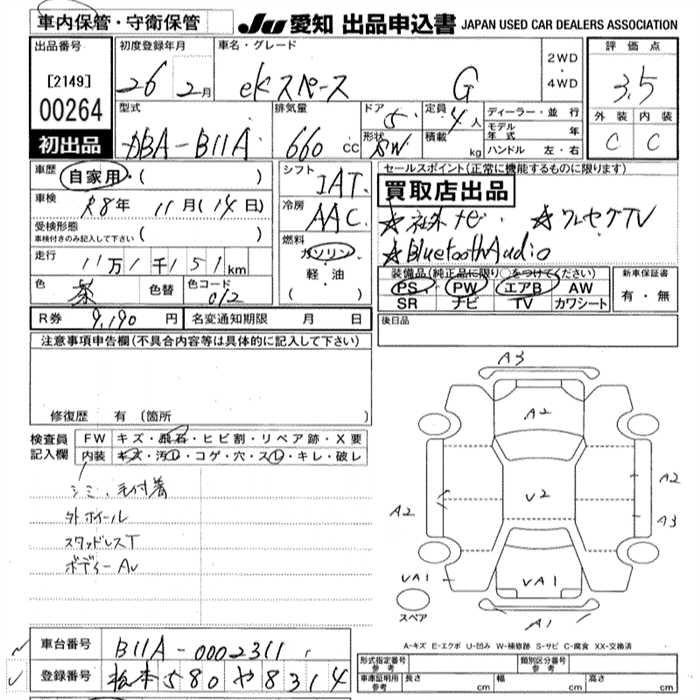 車内保管・守衛保管
JU 愛知 出品申込書 JAPAN USED CAR DEALERS ASSOCIATION
出品番号 初度登録年月 車名・グレード 評価点
[2149] 26年2月 eKスペース G 2WD・4WD 3.5
00264
型式 排気量 ドア 5 定員 4人 ディーラー・並行 外装 内装
初出品 DBA-B11A 660cc 形状 SW 積載 kg モデル年式 年 C C
ハンドル 左・右
車歴 自家用・( ) シフト IAT セールスポイント(正常に機能するものに限ります)
買取店出品
車検 R8年 11月(14日) 冷房 AAC ☆社外ナビ ☆ワンセグTV
受検形態 車検付きのみ記入して下さい ( ) ☆Bluetooth Audio
走行 11万1千151km 燃料 ガソリン・軽油 装備品(純正品に限り○をつけてください) 新車保証書
PS PW エアB AW 有・無
色 茶 色替 色コード 012 SR ナビ TV カワシート
R券 9,190円 名変通知期限 月 日 後日品
注意事項申告欄(不具合内容等は具体的に記入して下さい)
修復歴 有 (箇所
検査員記入欄 FW キズ・飛石・ヒビ割・リペア跡・X要
内装 キズ・汚レ・コゲ・穴・スレ・キレ・破レ
シミ・毛付着
外ホイール
スタッドレスT
ボディーAU
A3
A2
V2
A2
A2
A3
VA1
VA1
A1
スペア
A-キズ E-エクボ U-凹み W-補修跡 S-サビ C-腐食 XX-交換済
車台番号 B11A-0002311
登録番号 松本580や8314
形式指定番号 参考 類別区分番号 参考
車庫証明用 参考 長さ cm 幅 cm 高さ cm